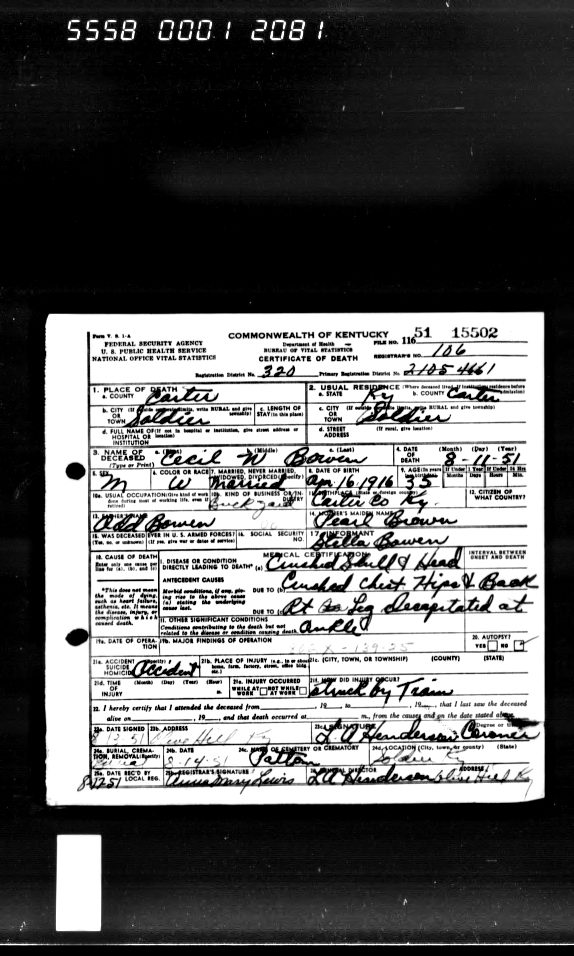 5558 0001 2081
Form V. S. 1-A
FEDERAL SECURITY AGENCY
U. S. PUBLIC HEALTH SERVICE
NATIONAL OFFICE VITAL STATISTICS
COMMONWEALTH OF KENTUCKY
Department of Health
BUREAU OF VITAL STATISTICS
CERTIFICATE OF DEATH
FILE NO. 116 51 15502
REGISTRAR'S NO. 106
Registration District No. 320 Primary Registration District No. 2105-4661
1. PLACE OF DEATH
a. COUNTY Carter
2. USUAL RESIDENCE (Where deceased lived. If institution: residence before admission)
a. STATE Ky b. COUNTY Carter
b. CITY (If outside corporate limits, write RURAL and give township)
OR TOWN Soldier
c. LENGTH OF STAY (in this place)
c. CITY (If outside corporate limits, write RURAL and give township)
OR TOWN Soldier
d. FULL NAME OF (If not in hospital or institution, give street address or location)
HOSPITAL OR INSTITUTION
d. STREET ADDRESS (If rural, give location)
3. NAME OF DECEASED (Type or Print)
a. (First) (Middle) c. (Last)
Cecil M Bowen
4. DATE OF DEATH (Month) (Day) (Year)
8-11-51
5. SEX M
6. COLOR OR RACE W
7. MARRIED, NEVER MARRIED, WIDOWED, DIVORCED (Specify) Married
8. DATE OF BIRTH Apr 16, 1916
9. AGE (In years last birthday) 35
If Under 1 Year Months Days If Under 24 Hrs Hours Min.
10a. USUAL OCCUPATION (Give kind of work done during most of working life, even if retired)
10b. KIND OF BUSINESS OR INDUSTRY Brick yard
11. BIRTHPLACE (State or foreign country) Carter Co Ky
12. CITIZEN OF WHAT COUNTRY?
13. FATHER'S NAME Odd Bowen
14. MOTHER'S MAIDEN NAME Pearl Brown
15. WAS DECEASED EVER IN U. S. ARMED FORCES? (Yes, no, or unknown) (If yes, give war or dates of service)
16. SOCIAL SECURITY NO.
17. INFORMANT Stella Bowen
18. CAUSE OF DEATH
Enter only one cause per line for (a), (b), and (c)
MEDICAL CERTIFICATION
INTERVAL BETWEEN ONSET AND DEATH
I. DISEASE OR CONDITION DIRECTLY LEADING TO DEATH* (a) Crushed Skull & Head
*This does not mean the mode of dying, such as heart failure, asthenia, etc. It means the disease, injury, or complication which caused death.
ANTECEDENT CAUSES
Morbid conditions, if any, giving rise to the above cause (a) stating the underlying cause last.
DUE TO (b) Crushed Chest Hips & Back
DUE TO (c) Rt Leg Decapitated at Ankle
II. OTHER SIGNIFICANT CONDITIONS
Conditions contributing to the death but not related to the disease or condition causing death.
19a. DATE OF OPERATION
19b. MAJOR FINDINGS OF OPERATION
20. AUTOPSY? YES NO
21a. ACCIDENT SUICIDE HOMICIDE (Specify) Accident
21b. PLACE OF INJURY (e.g., in or about home, farm, factory, street, office bldg., etc.)
21c. (CITY, TOWN, OR TOWNSHIP) (COUNTY) (STATE)
21d. TIME OF INJURY (Month) (Day) (Year) (Hour) m.
21e. INJURY OCCURRED WHILE AT WORK NOT WHILE AT WORK
21f. HOW DID INJURY OCCUR? Struck by Train
22. I hereby certify that I attended the deceased from , 19 , to , 19 , that I last saw the deceased
alive on , 19 , and that death occurred at m., from the causes and on the date stated above.
23a. DATE SIGNED 23b. ADDRESS Olive Hill Ky
23c. SIGNATURE (Degree or title) L A Henderson Coroner
24a. BURIAL, CREMATION, REMOVAL (Specify) Burial
24b. DATE 8-14-51
24c. NAME OF CEMETERY OR CREMATORY Patton
24d. LOCATION (City, town, or county) (State) Soldier Ky
25a. DATE REC'D BY LOCAL REG.
25b. REGISTRAR'S SIGNATURE Anna Mary Lewis
26. FUNERAL DIRECTOR ADDRESS L A Henderson Olive Hill Ky